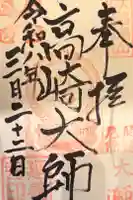 奉拝
高崎大師
令和八年
三月二十二日